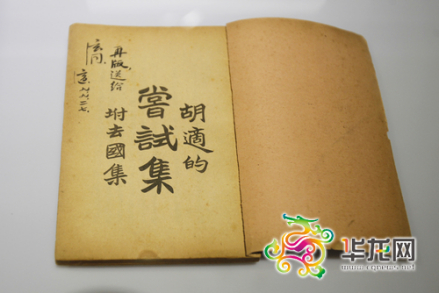 胡適的
嘗試集
坿去國集
再版送給
玄同.
华龙网
www.cqnews.net